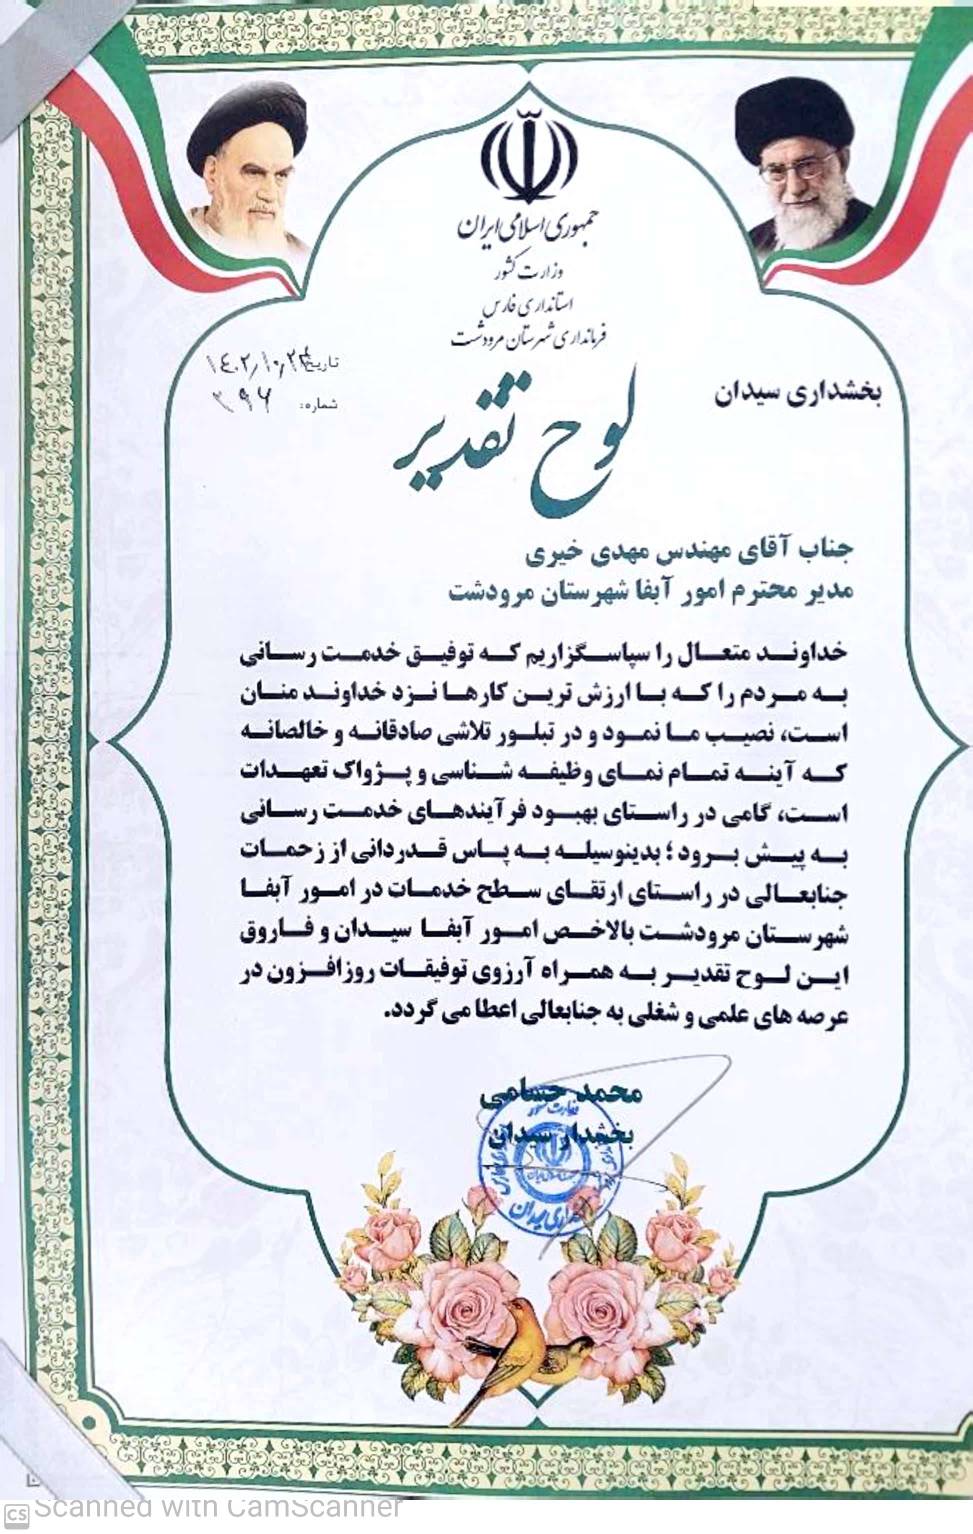 جمهوری اسلامی ایران
وزارت کشور
استانداری فارس
فرمانداری شهرستان مرودشت
بخشداری سیدان
تاریخ: ۱۴۰۲/۱۰/۲۴
شماره: ۳۹۶
لوح تقدیر
جناب آقای مهندس مهدی خیری
مدیر محترم امور آبفا شهرستان مرودشت
خداوند متعال را سپاسگزاریم که توفیق خدمت رسانی
به مردم را که با ارزش ترین کارها نزد خداوند منان
است، نصیب ما نمود و در تبلور تلاشی صادقانه و خالصانه
که آینه تمام نمای وظیفه شناسی و پژواک تعهدات
است، گامی در راستای بهبود فرآیندهای خدمت رسانی
به پیش برود؛ بدینوسیله به پاس قدردانی از زحمات
جنابعالی در راستای ارتقای سطح خدمات در امور آبفا
شهرستان مرودشت بالاخص امور آبفا سیدان و فاروق
این لوح تقدیر به همراه آرزوی توفیقات روزافزون در
عرصه های علمی و شغلی به جنابعالی اعطا می گردد.
محمد حسامی
بخشدار سیدان
وزارت کشور
CS Scanned with CamScanner